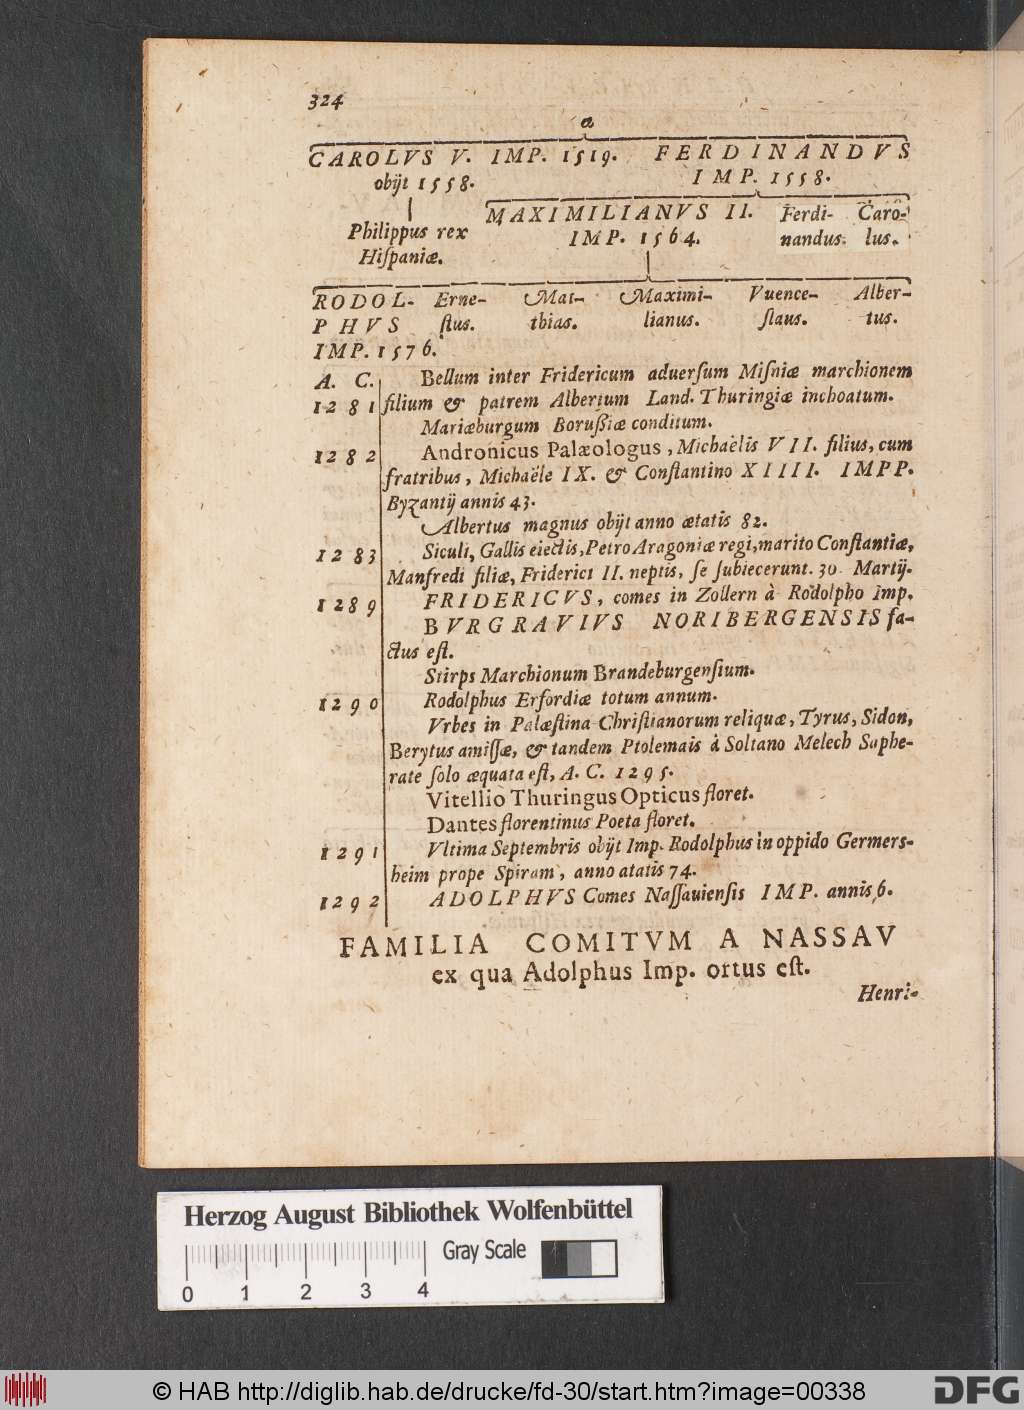 324
a
CAROLVS V. IMP. 1519. FERDINANDVS
obijt 1558. IMP. 1558.
MAXIMILIANVS II. Ferdi- Caro-
Philippus rex IMP. 1564. nandus. lus.
Hiſpaniæ.
RODOL- Erne- Mat- Maximi- Vuence- Alber-
PHVS ſtus. thias. lianus. ſlaus. tus.
IMP. 1576.
A. C. Bellum inter Fridericum aduerſum Miſniæ marchionem
1281 filium & patrem Albertum Land. Thuringiæ inchoatum.
Mariæburgum Borußiæ conditum.
1282 Andronicus Palæologus, Michaëlis VII. filius, cum
fratribus, Michaële IX. & Conſtantino XIIII. IMPP.
Byzantij annis 43.
Albertus magnus obijt anno ætatis 82.
1283 Siculi, Gallis eiectis, Petro Aragoniæ regi, marito Conſtantiæ,
Manfredi filiæ, Friderici II. neptis, ſe ſubiecerunt. 30 Martij.
1289 FRIDERICVS, comes in Zollern à Rodolpho Imp.
BVRGRAVIVS NORIBERGENSIS fa-
ctus eſt.
Stirps Marchionum Brandeburgenſium.
1290 Rodolphus Erfordiæ totum annum.
Vrbes in Palæſtina Chriſtianorum reliquæ, Tyrus, Sidon,
Berytus amiſſæ, & tandem Ptolemais à Soltano Melech Saphe-
rate ſolo æquata eſt, A. C. 1295.
Vitellio Thuringus Opticus floret.
Dantes florentinus Poeta floret.
1291 Vltima Septembris obijt Imp. Rodolphus in oppido Germers-
heim prope Spiram, anno ætatis 74.
1292 ADOLPHVS Comes Naſſauienſis IMP. annis 6.
FAMILIA COMITVM A NASSAV
ex qua Adolphus Imp. ortus eſt.
Henri-
Herzog August Bibliothek Wolfenbüttel
Gray Scale
0 1 2 3 4
© HAB http://diglib.hab.de/drucke/fd-30/start.htm?image=00338
DFG